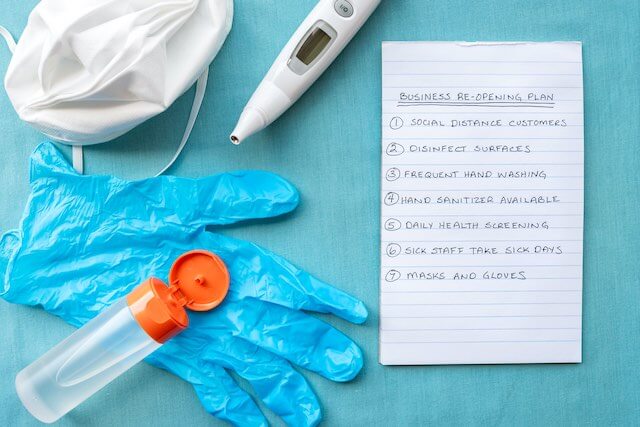 I/O
BUSINESS RE-OPENING PLAN
① SOCIAL DISTANCE CUSTOMERS
② DISINFECT SURFACES
③ FREQUENT HAND WASHING
④ HAND SANITIZER AVAILABLE
⑤ DAILY HEALTH SCREENING
⑥ SICK STAFF TAKE SICK DAYS
⑦ MASKS AND GLOVES